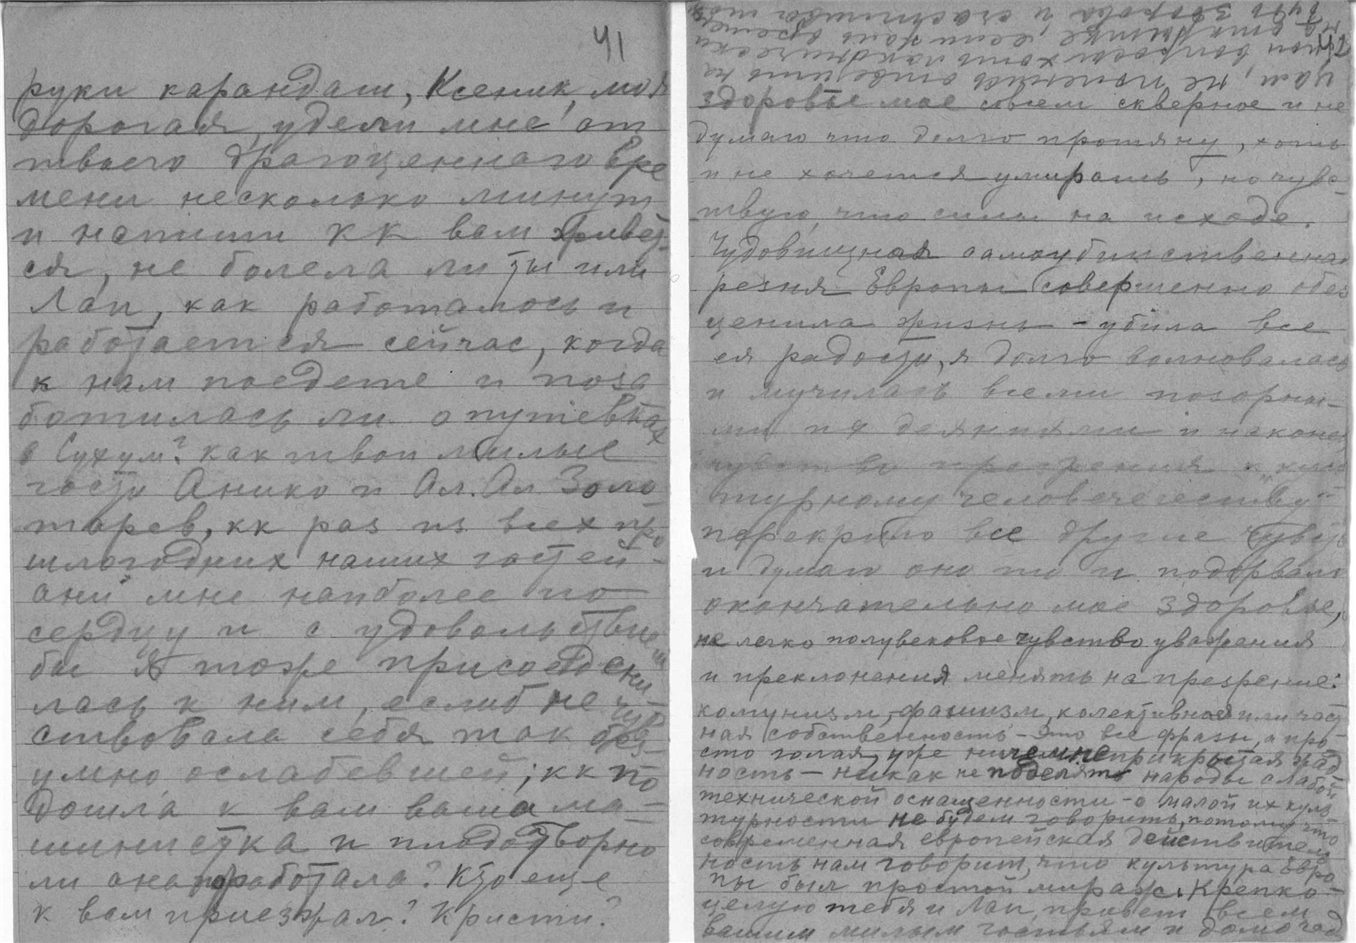 41
руки карандаш, Ксеник, моя
дорогая, удели мне от
твоего драгоценнаго вре
мени несколько минут
и напиши кк вам живет-
ся, не болела ли ты или
Лап, как работалось и
работается сейчас, когда
к нам поедете и поза
ботилась ли о путевках
в Сухум? Как твои милые
гости Анико и Ал. Ал Золо
тарев, кк раз из всех про
шлогодних наших гостей-
они мне наиболее по
сердцу и с удовольствием
бы я тоже присоедени
лась к ним, еслиб не чув
ствовала себя так без-
умно ослабевшей; кк по
дошла к вам ваша ма-
шинистка и плодотворно
ли она поработала? Кто еще
к вам приезжал? Кристи?
цам, не поленись ответить на
мои вопросы хоть лаконически
открытке, если жаль время
Будь здорова и счастлива
здоровье мое совсем скверное и не
думаю что долго протяну, хоть
и не хочется умирать, но чувс
твую, что силы на исходе.
Чудовищная самоубийственная
резня Европы совершенно обез
ценила жизнь - убила все
ея радости, я долго волновалась
и мучилась всеми позорны-
ми их деяниями и наконец
чувство презрения к "куль
турному человечегеству"
перекрыло все другие чувств
и думаю оно то и подорвало
окончательно мое здоровье,
не легко полувековое чувство уважения
и преклонения менять на презрение:
комунизм, фашизм, колективная или част
ная собственность - это все фразы, а про-
сто голая, уже ничем не прикрытая жад
ность - никак не поделять народы слабой
технической оснащенности - о малой их куль-
турности не будем говорить, потому что
современная европейская действитель
ность нам говорит, что культура Евро
пы был простой мираж. Крепко-
целую тебя и Лап, привет всем
вашим милым гостьям и домочад